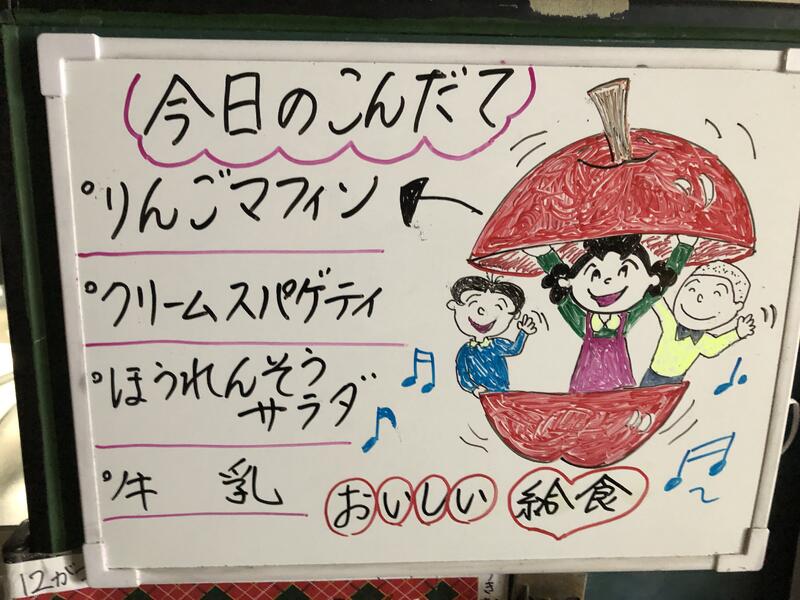 今日のこんだて
°りんごマフィン
°クリームスパゲティ
°ほうれんそう
サラダ
°牛 乳
おいしい 給食
12が